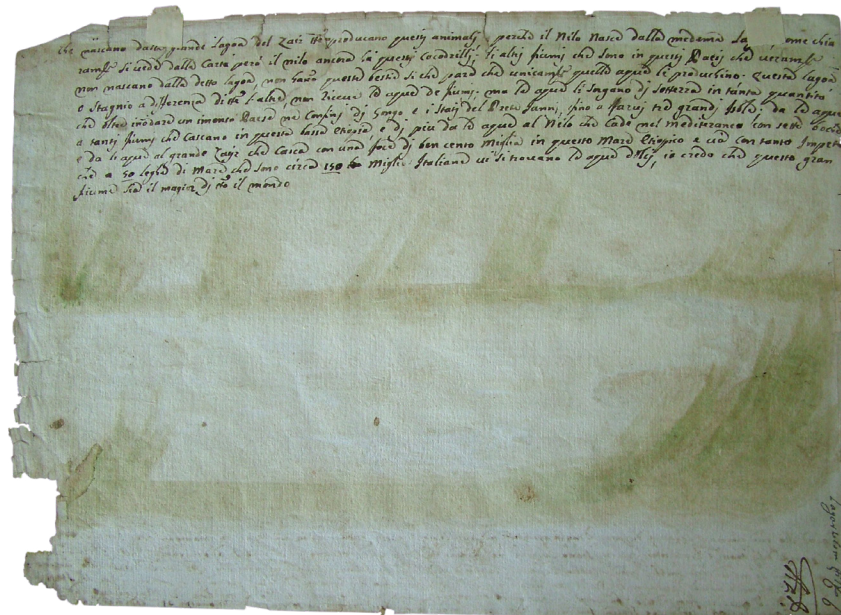 che nascano dalla grande lagoa del Zair producano questi animali, perche il Nilo nasce dalla medema la ome chia
si vede dalla Carta però il nilo ancora hà questi Cocodrilli; li altri fiumi che sono in questi Paesi che
non nascano dalla detta lagoa, non hanno queste bestie si che pare che unicamte quelle aque le produchino. Questa lagoa
e Stagnio a differenza di l'altre, non riceve le aque de fiumi, ma le aque li sorgano di sotterra in tanta quantità
che oltre inodare un imenso Paese ne Confini di Songo e i Stati del Prete Janni, sino a farvi tre grandi Isole, da le aque
a tanti fiumi che Cascano in questa bassa Etiopia e di più da le aque al Nilo che Cade nel mediteraneo con sette bocche
e da le aque al grande Zair che Casca con una foce di ben cento Miglia in questo Mare Etiopico e và con tanto Impeto
che a 50 leghe di Mare che sono circa 150 Miglie Italiane vi si trovano le aque, io credo che questo gran
fiume sia il magior di il mondo